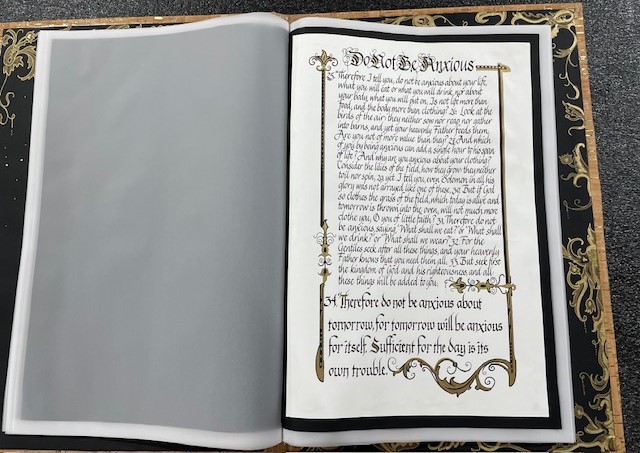 Do Not Be Anxious
25 Therefore I tell you, do not be anxious about your life,
what you will eat or what you will drink, nor about
your body, what you will put on. Is not life more than
food, and the body more than clothing? 26. Look at the
birds of the air: they neither sow nor reap nor gather
into barns, and yet your heavenly Father feeds them.
Are you not of more value than they? 27. And which
of you by being anxious can add a single hour to his span
of life? And why are you anxious about your clothing?
Consider the lilies of the field, how they grow: they neither
toil nor spin, 29. yet I tell you, even Solomon in all his
glory was not arrayed like one of these. 30. But if God
so clothes the grass of the field, which today is alive and
tomorrow is thrown into the oven, will not much more
clothe you, O you of little faith? 31. Therefore do not
be anxious, saying, "What shall we eat?" or "What shall
we drink?" or "What shall we wear?" 32. For the
Gentiles seek after all these things, and your heavenly
Father knows that you need them all. 33. But seek first
the kingdom of God and his righteousness, and all
these things will be added to you.
34. Therefore do not be anxious about
tomorrow, for tomorrow will be anxious
for itself. Sufficient for the day is its
own trouble.